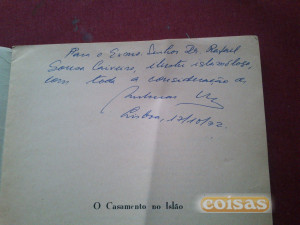 Para o Exmo. Senhor Dr. Rafael
Souza Carneiro, ilustre islamólogo,
com toda a consideração de
Lisboa, 12/10/72.
O Casamento no Islão
coisas